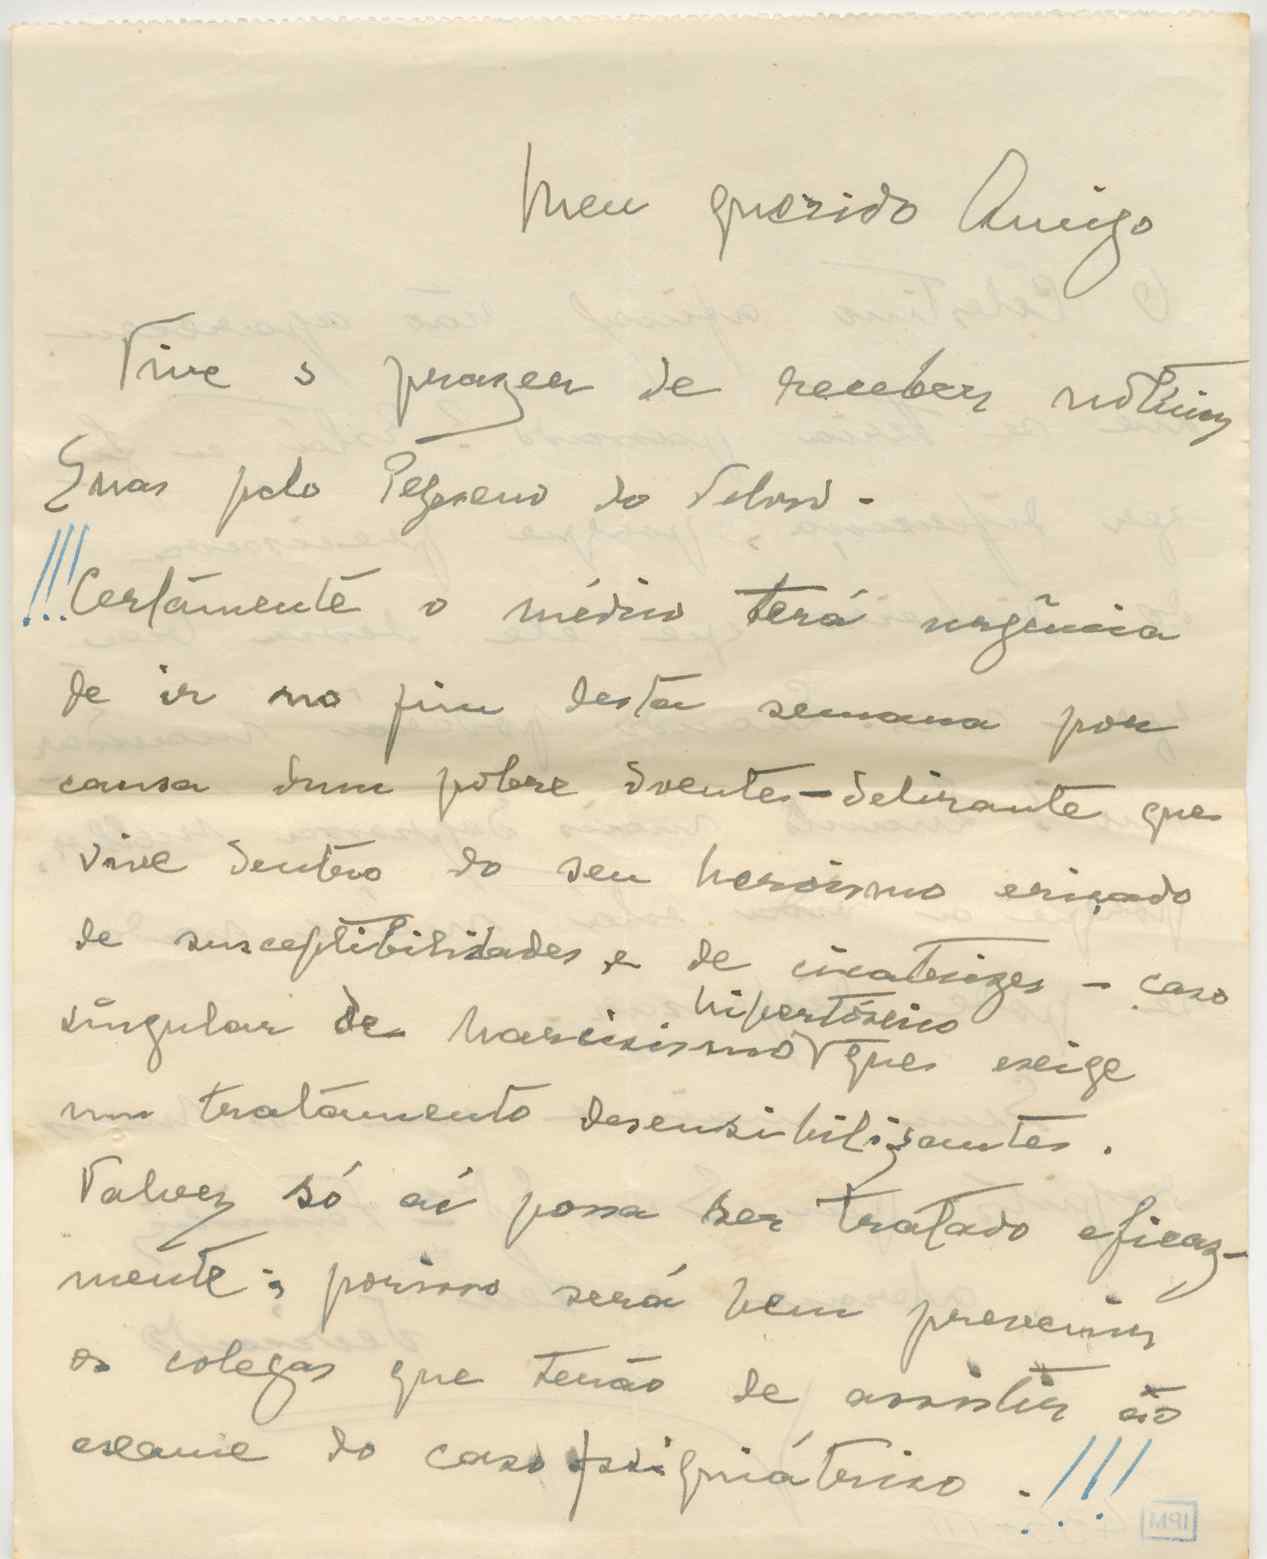 Meu querido Amigo
Tive o prazer de receber notícias
Suas pelo do Veloso.
!!! Certàmente o médico terá urgência
de ir no fim desta semana por
causa dum pobre doente-delirante que
vive dentro do seu heroismo eriçado
de susceptibilidades e de cicatrizes - caso
singular de narcisismo hipertóxico que exige
um tratamento desensibilizante.
Talvez só aí possa ser tratado eficaz-
mente; porisso será bem prevenir
os colegas que terão de assistir ao
exame do caso psiquiátrico. !!!
IPM